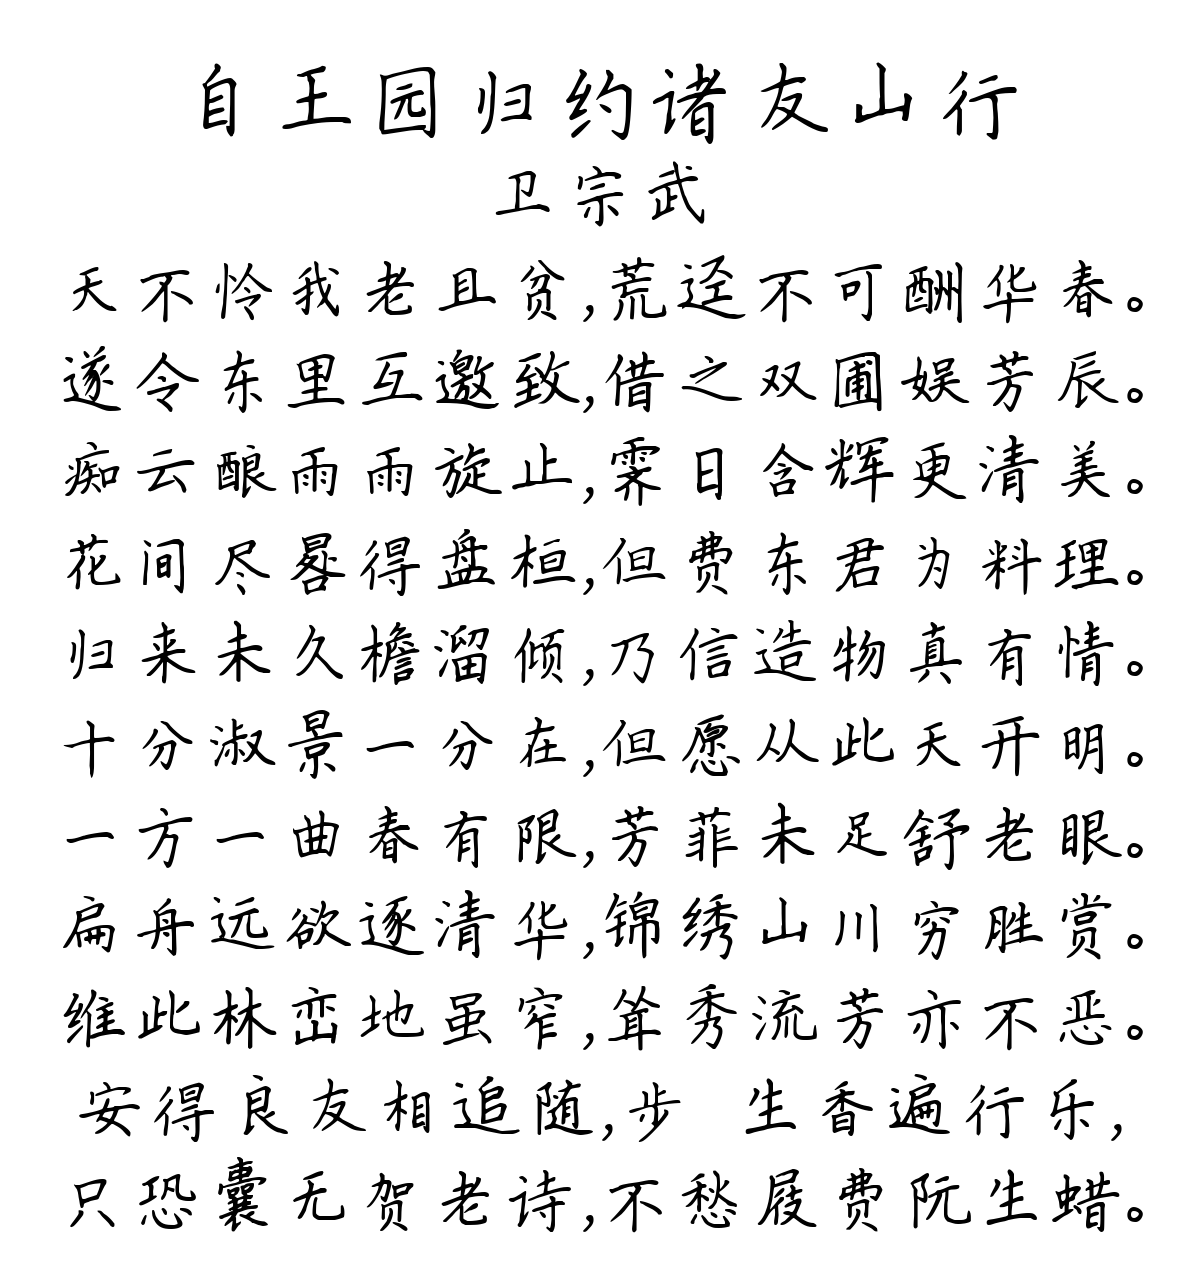 自王园归约诸友山行
卫宗武
天不怜我老且贫,荒迳不可酬华春。
遂令东里互邀致,借之双圃娱芳辰。
痴云酿雨雨旋止,霁日含辉更清美。
花间尽晷得盘桓,但费东君为料理。
归来未久檐溜倾,乃信造物真有情。
十分淑景一分在,但愿从此天开明。
一方一曲春有限,芳菲未足舒老眼。
扁舟远欲逐清华,锦绣山川穷胜赏。
维此林峦地虽窄,耸秀流芳亦不恶。
安得良友相追随,步 生香遍行乐,
只恐囊无贺老诗,不愁屐费阮生蜡。